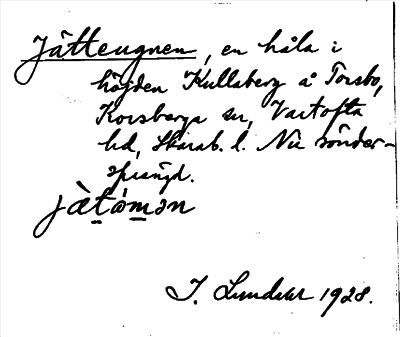 Jätteugnen, en håla i
höjden Kullaberg å Torsbo,
Korsberga sn, Vartofta
hd, Skarab. l. Nu sönder-
sprängd.
jàt̲ómən
J. 1928.